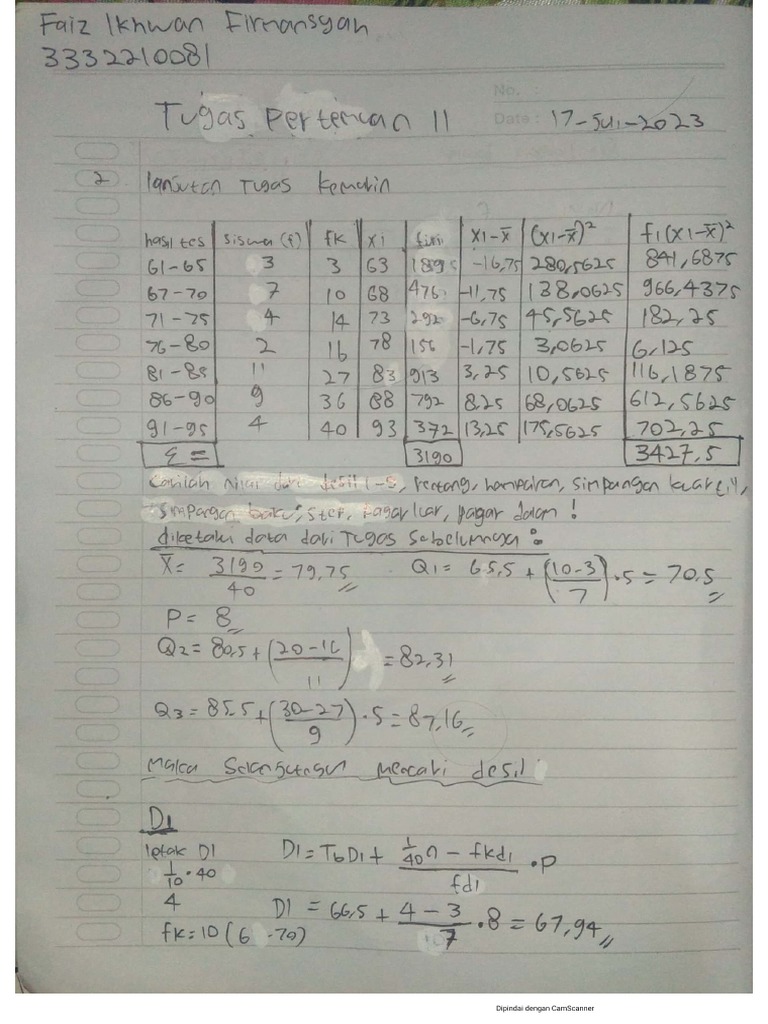 Faiz Ikhwan Firmansyah
3332210081
No. :
Date : 17-Juli-2023
Tugas Pertemuan 11
2. lanjutan Tugas kemarin
hasil tes siswa (f) fk xi fixi X1-x̄ (X1-x̄)² f1(X1-x̄)²
61-65 3 3 63 189 -16,75 280,5625 841,6875
67-70 7 10 68 476 -11,75 138,0625 966,4375
71-75 4 14 73 292 -6,75 45,5625 182,25
76-80 2 16 78 156 -1,75 3,0625 6,125
81-85 11 27 83 913 3,25 10,5625 116,1875
86-90 9 36 88 792 8,25 68,0625 612,5625
91-95 4 40 93 372 13,25 175,5625 702,25
Σ = 3190 3427,5
Carilah nilai dari desil 1-9, rentang, hamparan, simpangan kuartil,
simpangan baku, pagar luar, pagar dalam !
diketahui data dari Tugas Sebelumnya :
x̄ = 3190/40 = 79,75 Q1 = 65,5 + (10-3/7) · 5 = 70,5
P = 8
Q2 = 80,5 + (20-16/11) = 82,31
Q3 = 85,5 + (30-27/9) · 5 = 87,16
Maka Selanjutnya mencari desil
D1
letak D1 D1 = TbD1 + 1/40 n - fkd1/fd1 · P
1/10 · 40
4 D1 = 66,5 + 4-3/7 · 8 = 67,94
fk = 10 (6 -70)
Dipindai dengan CamScanner